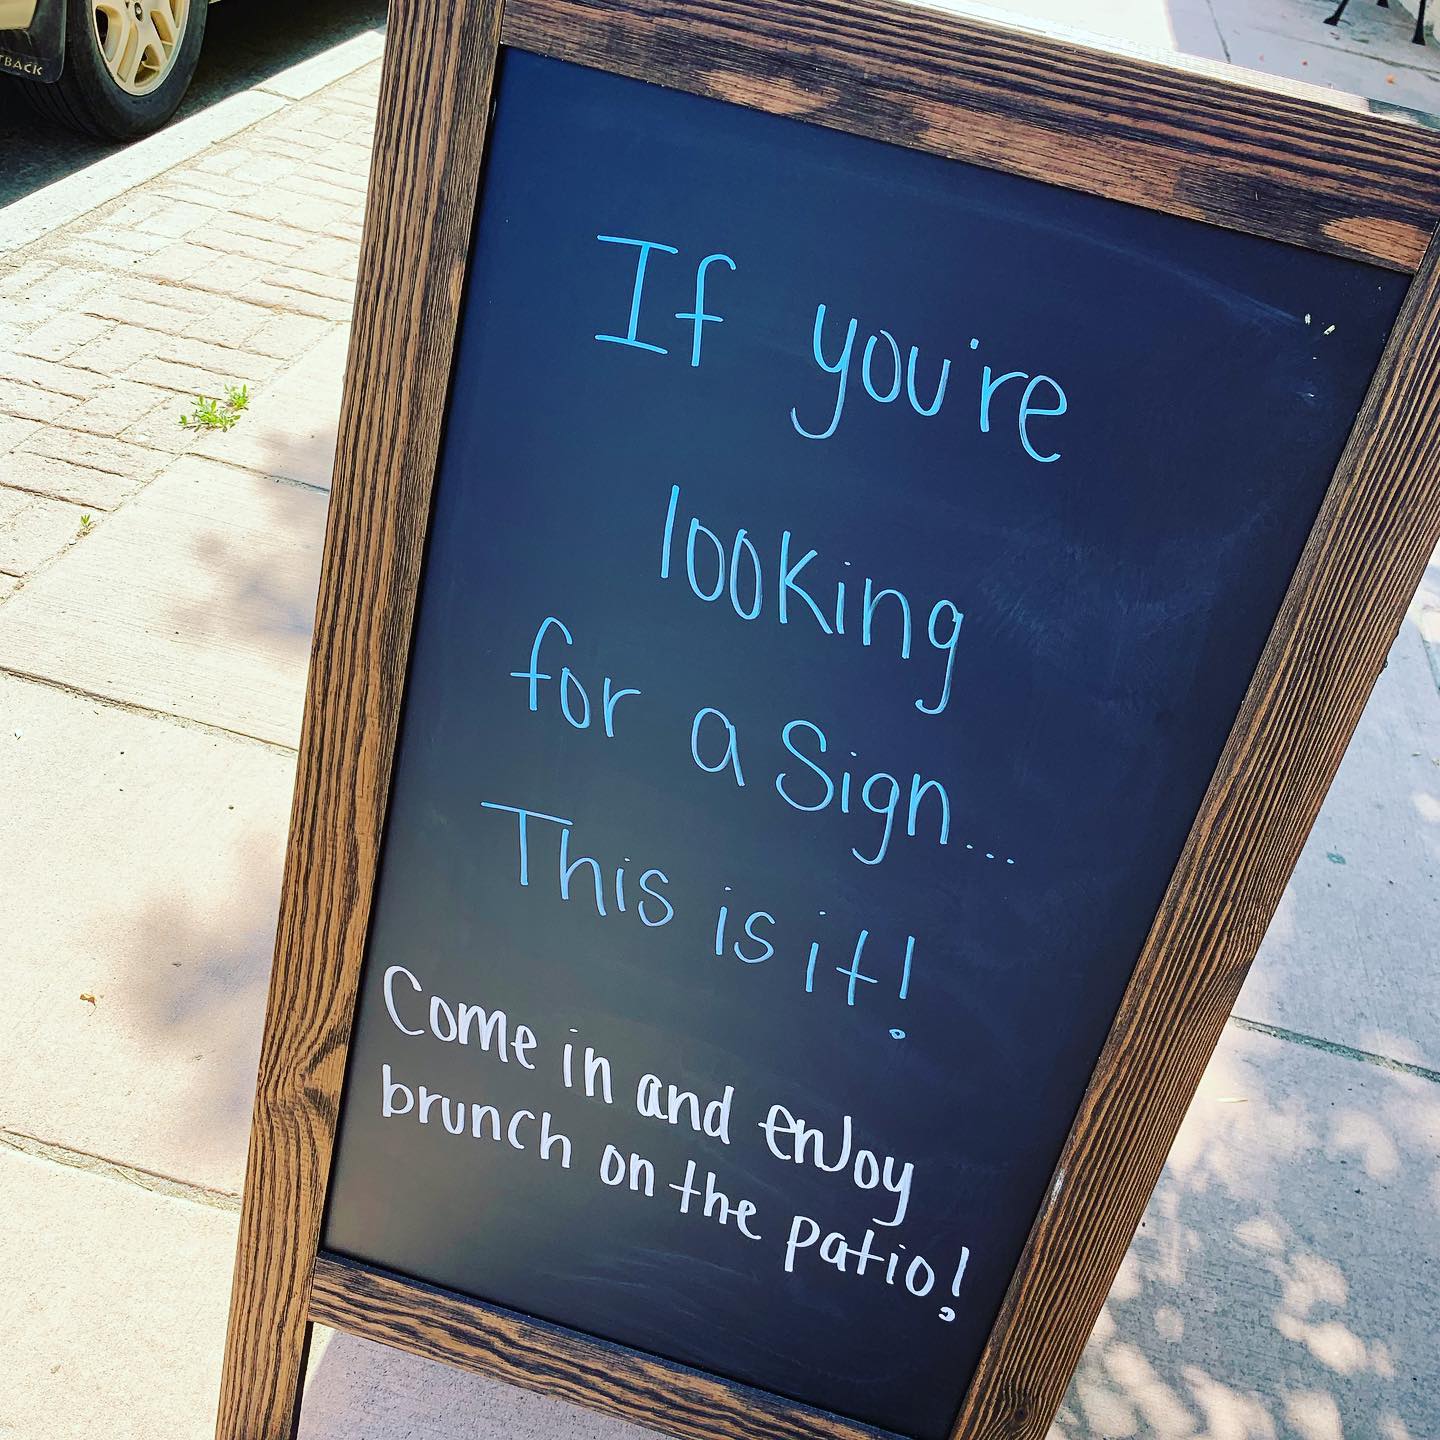 TBACK
If you're
looking
for a Sign...
This is it!
Come in and enjoy
brunch on the patio!